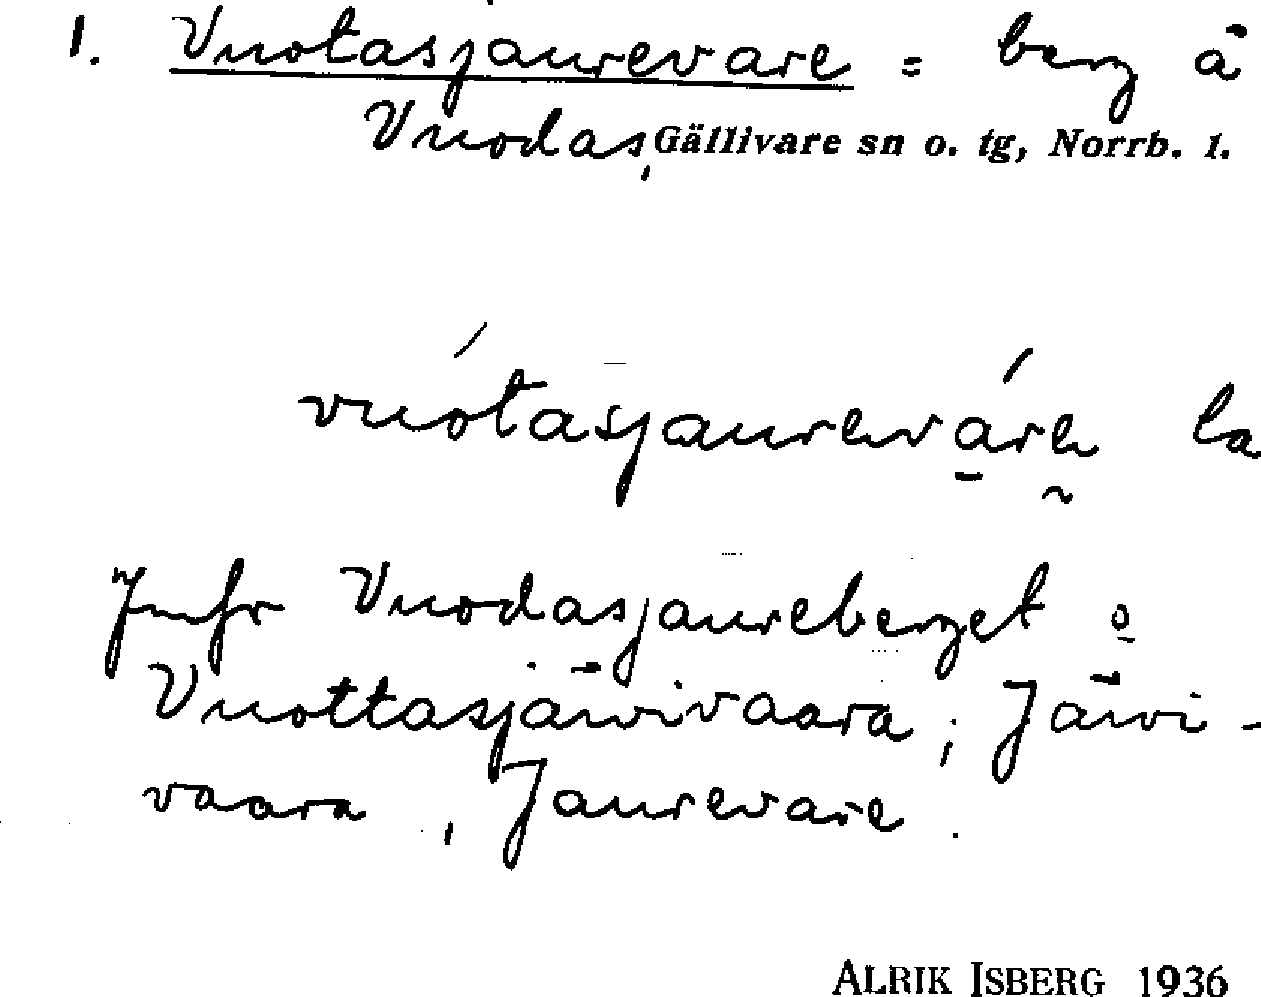 1. Vuotasjaurevare = berg å
Vuodas, Gällivare sn o. tg, Norrb. l.
vuótasjaureváre la
Jmfr Vuodasjaureberget o
Vuottasjäivivaara; Jäivi-
vaara, Jaurevare.
ALRIK ISBERG 1936